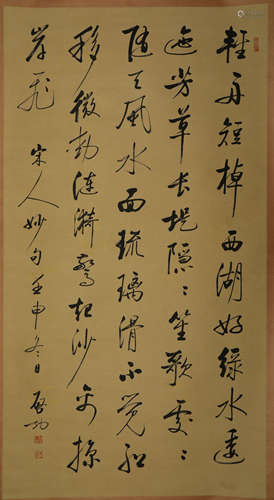 輕舟短棹西湖好綠水逶
迤芳草長堤隱〻笙歌處〻
隨无風水面琉璃滑不覺船
移微動漣漪驚起沙禽掠
岸飛
宋人妙句壬申冬日 啟功